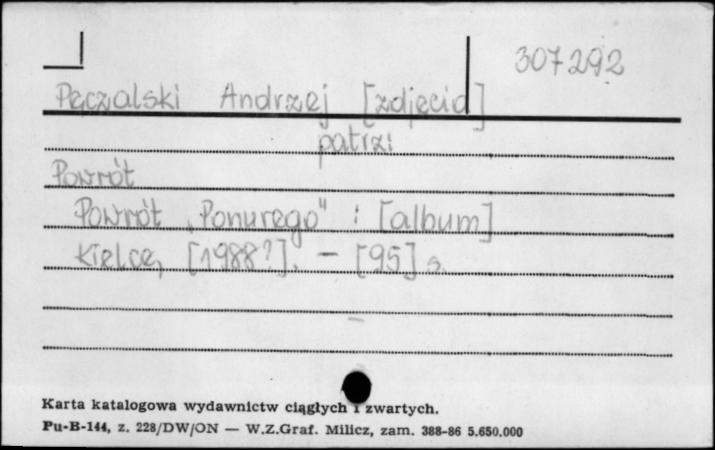 307292
Pęczalski Andrzej [zdjęcia]
patrz:
Powrót
Powrót „Ponurego" : [album]
Kielce, [1988?]. — [95] s.
Karta katalogowa wydawnictw ciągłych i zwartych.
Pu-B-144, z. 228/DW/ON — W.Z.Graf. Milicz, zam. 388-86 5.650.000